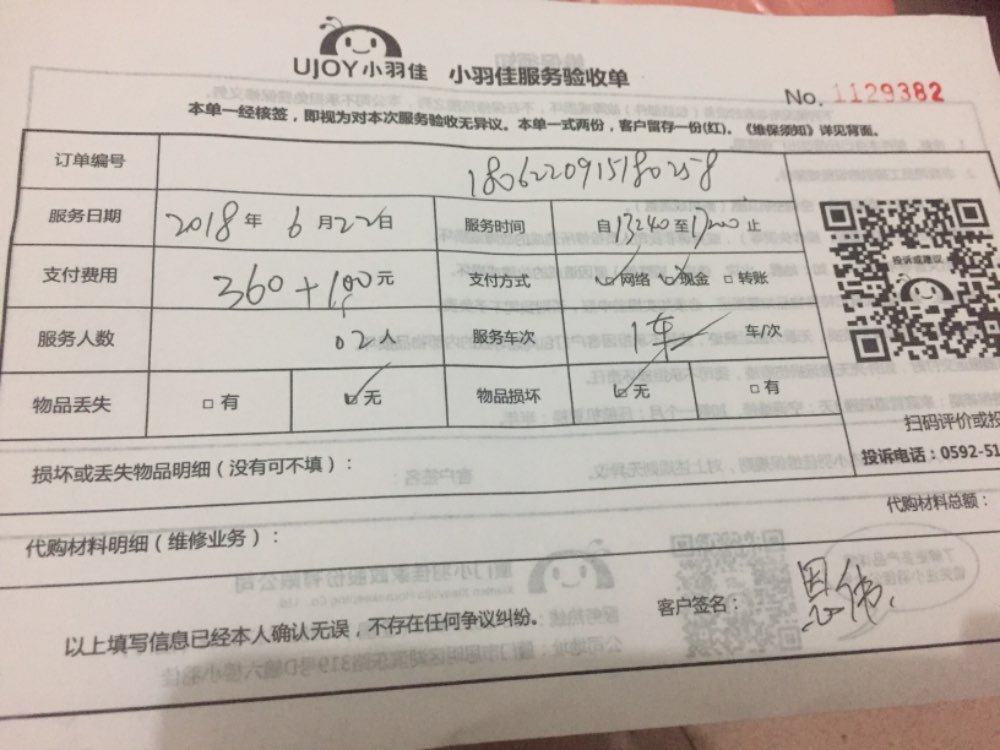 UJOY小羽佳 小羽佳服务验收单
No. 1129382
本单一经核签，即视为对本次服务验收无异议。本单一式两份，客户留存一份(红)。《维保须知》详见背面。
订单编号 1806220915180258
服务日期 2018年 6月22日 服务时间 自 至 止
支付费用 360+100元 支付方式 ☑网络 ☑现金 □转账
服务人数 02人 服务车次 1车 车/次
物品丢失 □有 ☑无 物品损坏 ☑无 □有
投诉或建议
扫码评价或投
投诉电话：0592-51
损坏或丢失物品明细（没有可不填）：
代购材料总额：
代购材料明细（维修业务）：
客户签名：
以上填写信息已经本人确认无误，不存在任何争议纠纷。